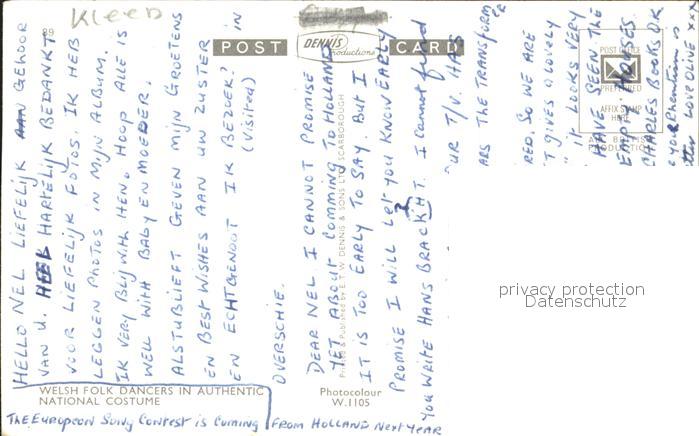 Kleed
89
POST CARD
DENNIS
Productions
HELLO NEL LIEFELIJK GEHOOR
VAN U. HARTELIJK BEDANKT
VOOR LIEFELIJK FOTOS. IK HEB
LEGGEN PHOTOS IN MIJN ALBUM.
IK VERY BLIJ WITH HEN. HOOP ALLE IS
WELL WITH BABY EN MOEDER.
ALSTUBLIEFT GEVEN MIJN GROETENS
EN BEST WISHES AAN UW ZUSTER
EN ECHTGENOOT IK BEZOEK? IN
(Visited)
OVERSCHIE.
DEAR NEL I CANNOT PROMISE
YET ABOUT COMMING TO HOLLAND
IT IS TOO EARLY TO SAY. BUT I
PROMISE I WILL LET YOU KNOW EARLY
YOU WRITE HANS BRACKHT. I cannot find
?
UR T/V. HAS
ARS THE TRANSFORMER
RED. SO WE ARE
T GIVES A LOVELY
" IT LOOKS VERY
HAVE SEEN THE
EMPTY HOUSES
CHARLES BOOKS OK
POST OFFICE
PREFERRED
AFFIX STAMP
HERE
A BRITISH
PRODUCTION
Printed & Published by E.T.W. DENNIS & SONS LTD. SCARBOROUGH
privacy protection
Datenschutz
WELSH FOLK DANCERS IN AUTHENTIC
NATIONAL COSTUME
Photocolour
W.1105
THE European Song Contest is coming FROM HOLLAND Next YEAR